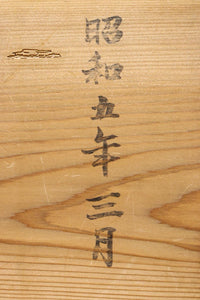 昭和五年三月